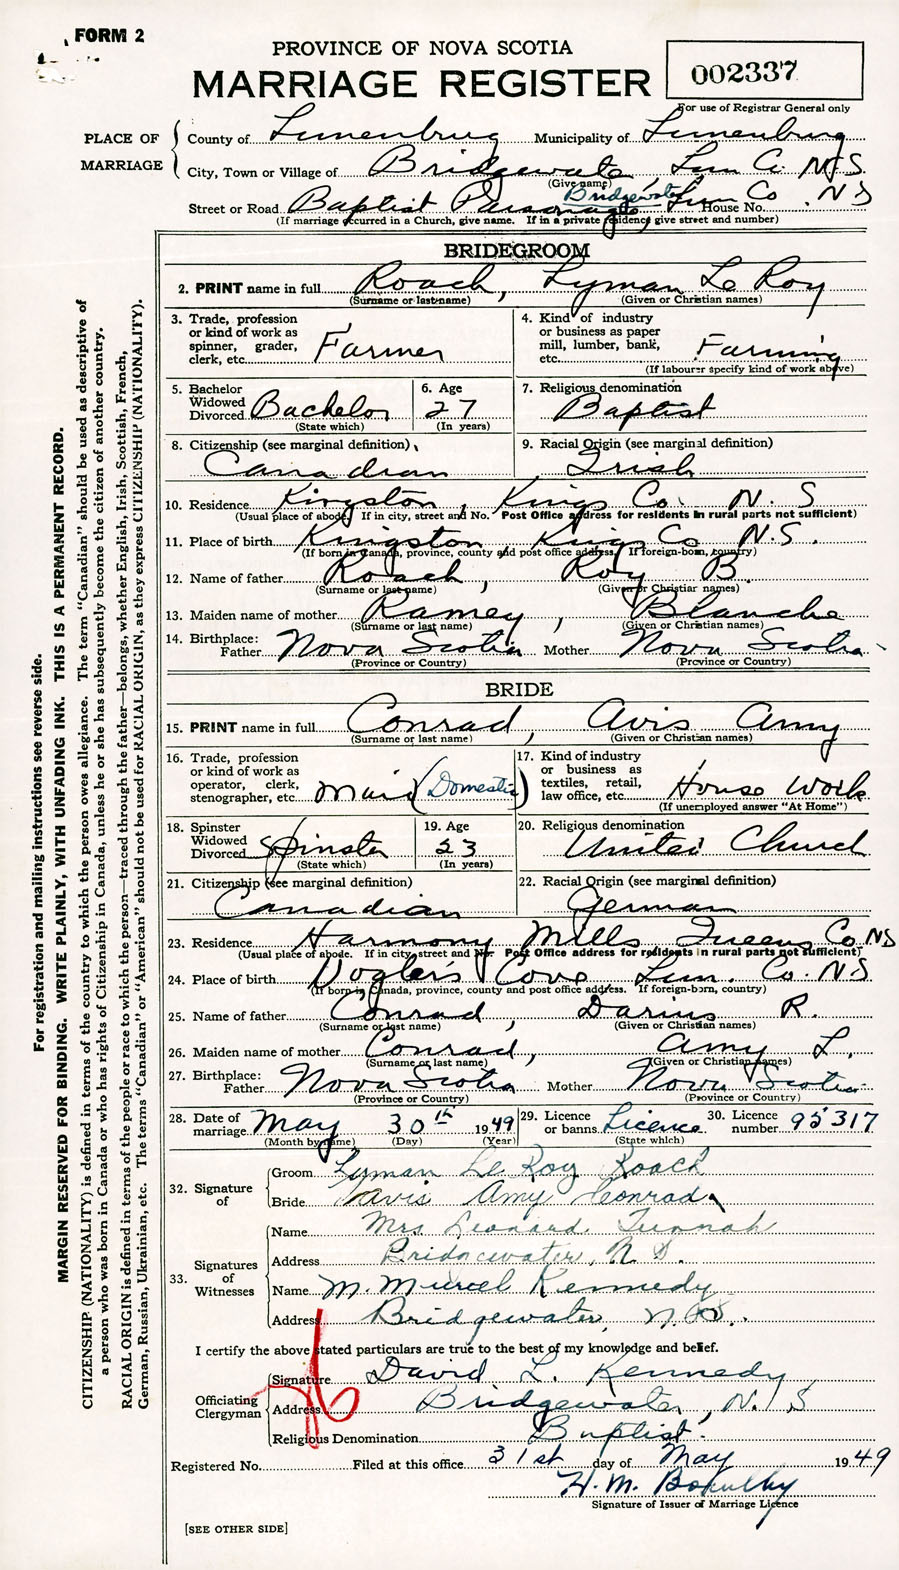 FORM 2
PROVINCE OF NOVA SCOTIA
MARRIAGE REGISTER
002337
For use of Registrar General only
PLACE OF MARRIAGE
County of Lunenburg Municipality of Lunenburg
City, Town or Village of Bridgewater, Lun Co. N.S
(Give name)
Bridgewater
Street or Road Baptist Parsonage Lun Co House No. N S
(If marriage occurred in a Church, give name. If in a private residence give street and number)
BRIDEGROOM
2. PRINT name in full Roach, Lyman Le Roy
(Surname or last name) (Given or Christian names)
3. Trade, profession or kind of work as spinner, grader, clerk, etc. Farmer
4. Kind of industry or business as paper mill, lumber, bank, etc. Farming
(If labourer specify kind of work above)
5. Bachelor Widowed Divorced Bachelor
(State which)
6. Age 27
(In years)
7. Religious denomination Baptist
8. Citizenship (see marginal definition) Canadian
9. Racial Origin (see marginal definition) Irish
10. Residence Kingston, Kings Co. N. S
(Usual place of abode. If in city, street and No. Post Office address for residents in rural parts not sufficient)
11. Place of birth Kingston Kings Co N.S.
(If born in Canada, province, county and post office address. If foreign-born, country)
12. Name of father Roach, Roy B.
(Surname or last name) (Given or Christian names)
13. Maiden name of mother Ramey, Blanche
(Surname or last name) (Given or Christian names)
14. Birthplace: Father Nova Scotia Mother Nova Scotia
(Province or Country) (Province or Country)
BRIDE
15. PRINT name in full Conrad, Avis Amy
(Surname or last name) (Given or Christian names)
16. Trade, profession or kind of work as operator, clerk, stenographer, etc. Maid (Domestic)
17. Kind of industry or business as textiles, retail, law office, etc. House Work
(If unemployed answer "At Home")
18. Spinster Widowed Divorced Spinster
(State which)
19. Age 23
(In years)
20. Religious denomination United Church
21. Citizenship (see marginal definition) Canadian
22. Racial Origin (see marginal definition) German
23. Residence Harmony Mills Queens Co NS
(Usual place of abode. If in city, street and No. Post Office address for residents in rural parts not sufficient)
24. Place of birth Vogler's Cove Lun. Co. N.S
(If born in Canada, province, county and post office address. If foreign-born, country)
25. Name of father Conrad, Darius R.
(Surname or last name) (Given or Christian names)
26. Maiden name of mother Conrad, Amy L.
(Surname or last name) (Given or Christian names)
27. Birthplace: Father Nova Scotia Mother Nova Scotia
(Province or Country) (Province or Country)
28. Date of marriage May 30th 1949
(Month by name) (Day) (Year)
29. Licence or banns Licence
(State which)
30. Licence number 95317
32. Signature of
Groom Lyman Le Roy Roach
Bride Avis Amy Conrad
33. Signatures of Witnesses
Name Mrs Leonard
Address Bridgewater, N S.
Name M. Muriel Kennedy
Address Bridgewater, N.S.
I certify the above stated particulars are true to the best of my knowledge and belief.
Officiating Clergyman
Signature David L. Kennedy
Address Bridgewater, N. S
Religious Denomination Baptist.
Registered No. Filed at this office 31st day of May 1949
H. M.
Signature of Issuer of Marriage Licence
[SEE OTHER SIDE]
For registration and mailing instructions see reverse side.
MARGIN RESERVED FOR BINDING. WRITE PLAINLY, WITH UNFADING INK. THIS IS A PERMANENT RECORD.
CITIZENSHIP (NATIONALITY) is defined in terms of the country to which the person owes allegiance. The term "Canadian" should be used as descriptive of
a person who was born in Canada or who has rights of Citizenship in Canada, unless he or she has subsequently become the citizen of another country.
RACIAL ORIGIN is defined in terms of the people or race to which the person—traced through the father—belongs, whether English, Irish, Scottish, French,
German, Russian, Ukrainian, etc. The terms "Canadian" or "American" should not be used for RACIAL ORIGIN, as they express CITIZENSHIP (NATIONALITY).